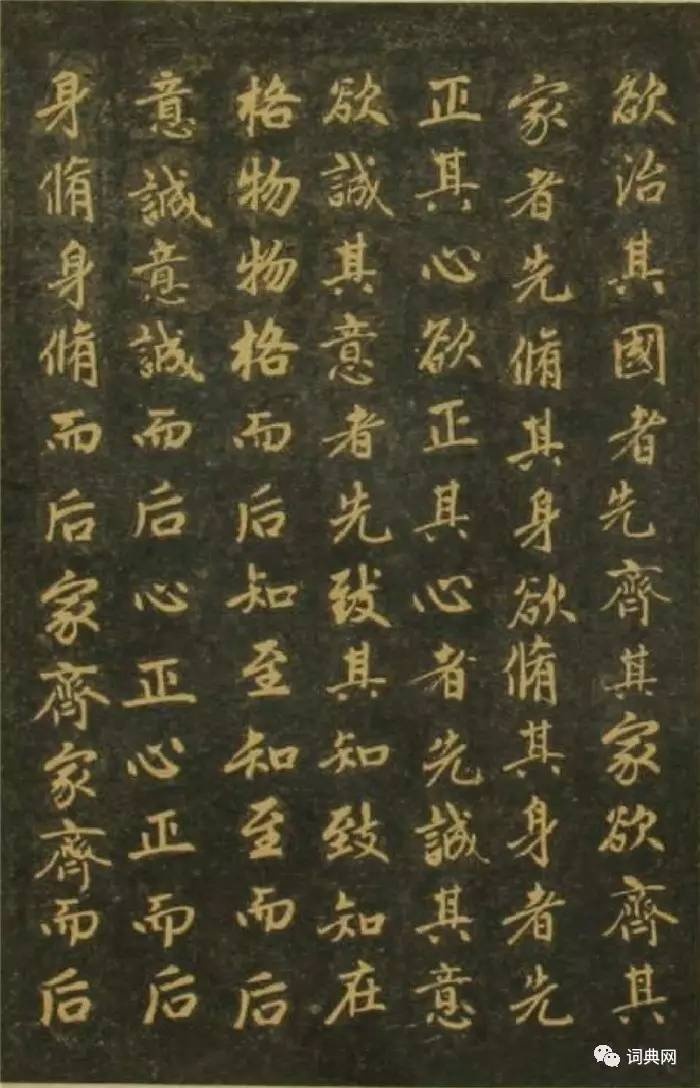 欲治其國者先齊其家欲齊其
家者先脩其身欲脩其身者先
正其心欲正其心者先誠其意
欲誠其意者先致其知致知在
格物物格而后知至知至而后
意誠意誠而后心正心正而后
身脩身脩而后家齊家齊而后
词典网